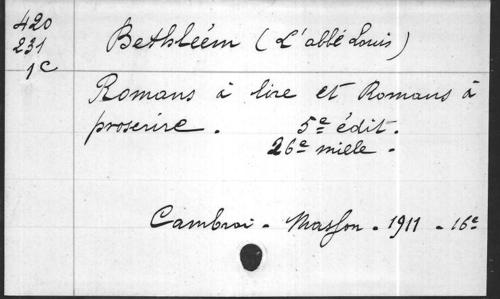 420
231
1C
Bethléem (L'abbé Louis)
Romans à lire et Romans à
proscrire. 5e édit.
26e mille.
Cambrai - Masson - 1911 - 16e